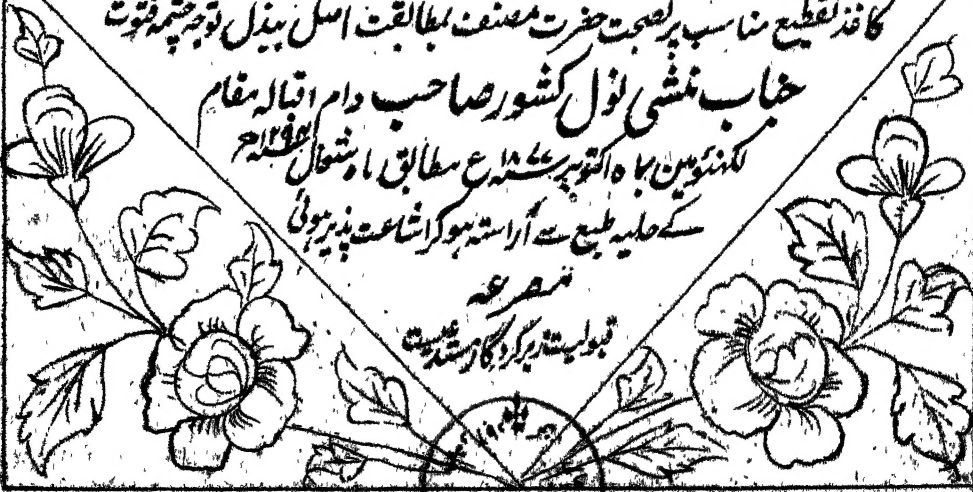 کاغذ تقطیع مناسب پر بصحت حضرت مصنف بمطابقت اصل ببذل توجہ چشمہ فتوت
جناب منشی نول کشور صاحب دام اقبالہ مقام
لکھنؤ مین بماہ اکتوبر سنہ ۱۸۷۷ ع مطابق ماہ شوال سنہ ۱۲۹۴ ھ
کے حلیہ طبع سے آراستہ ہوکر اشاعت پذیر ہوئی
مصرعہ